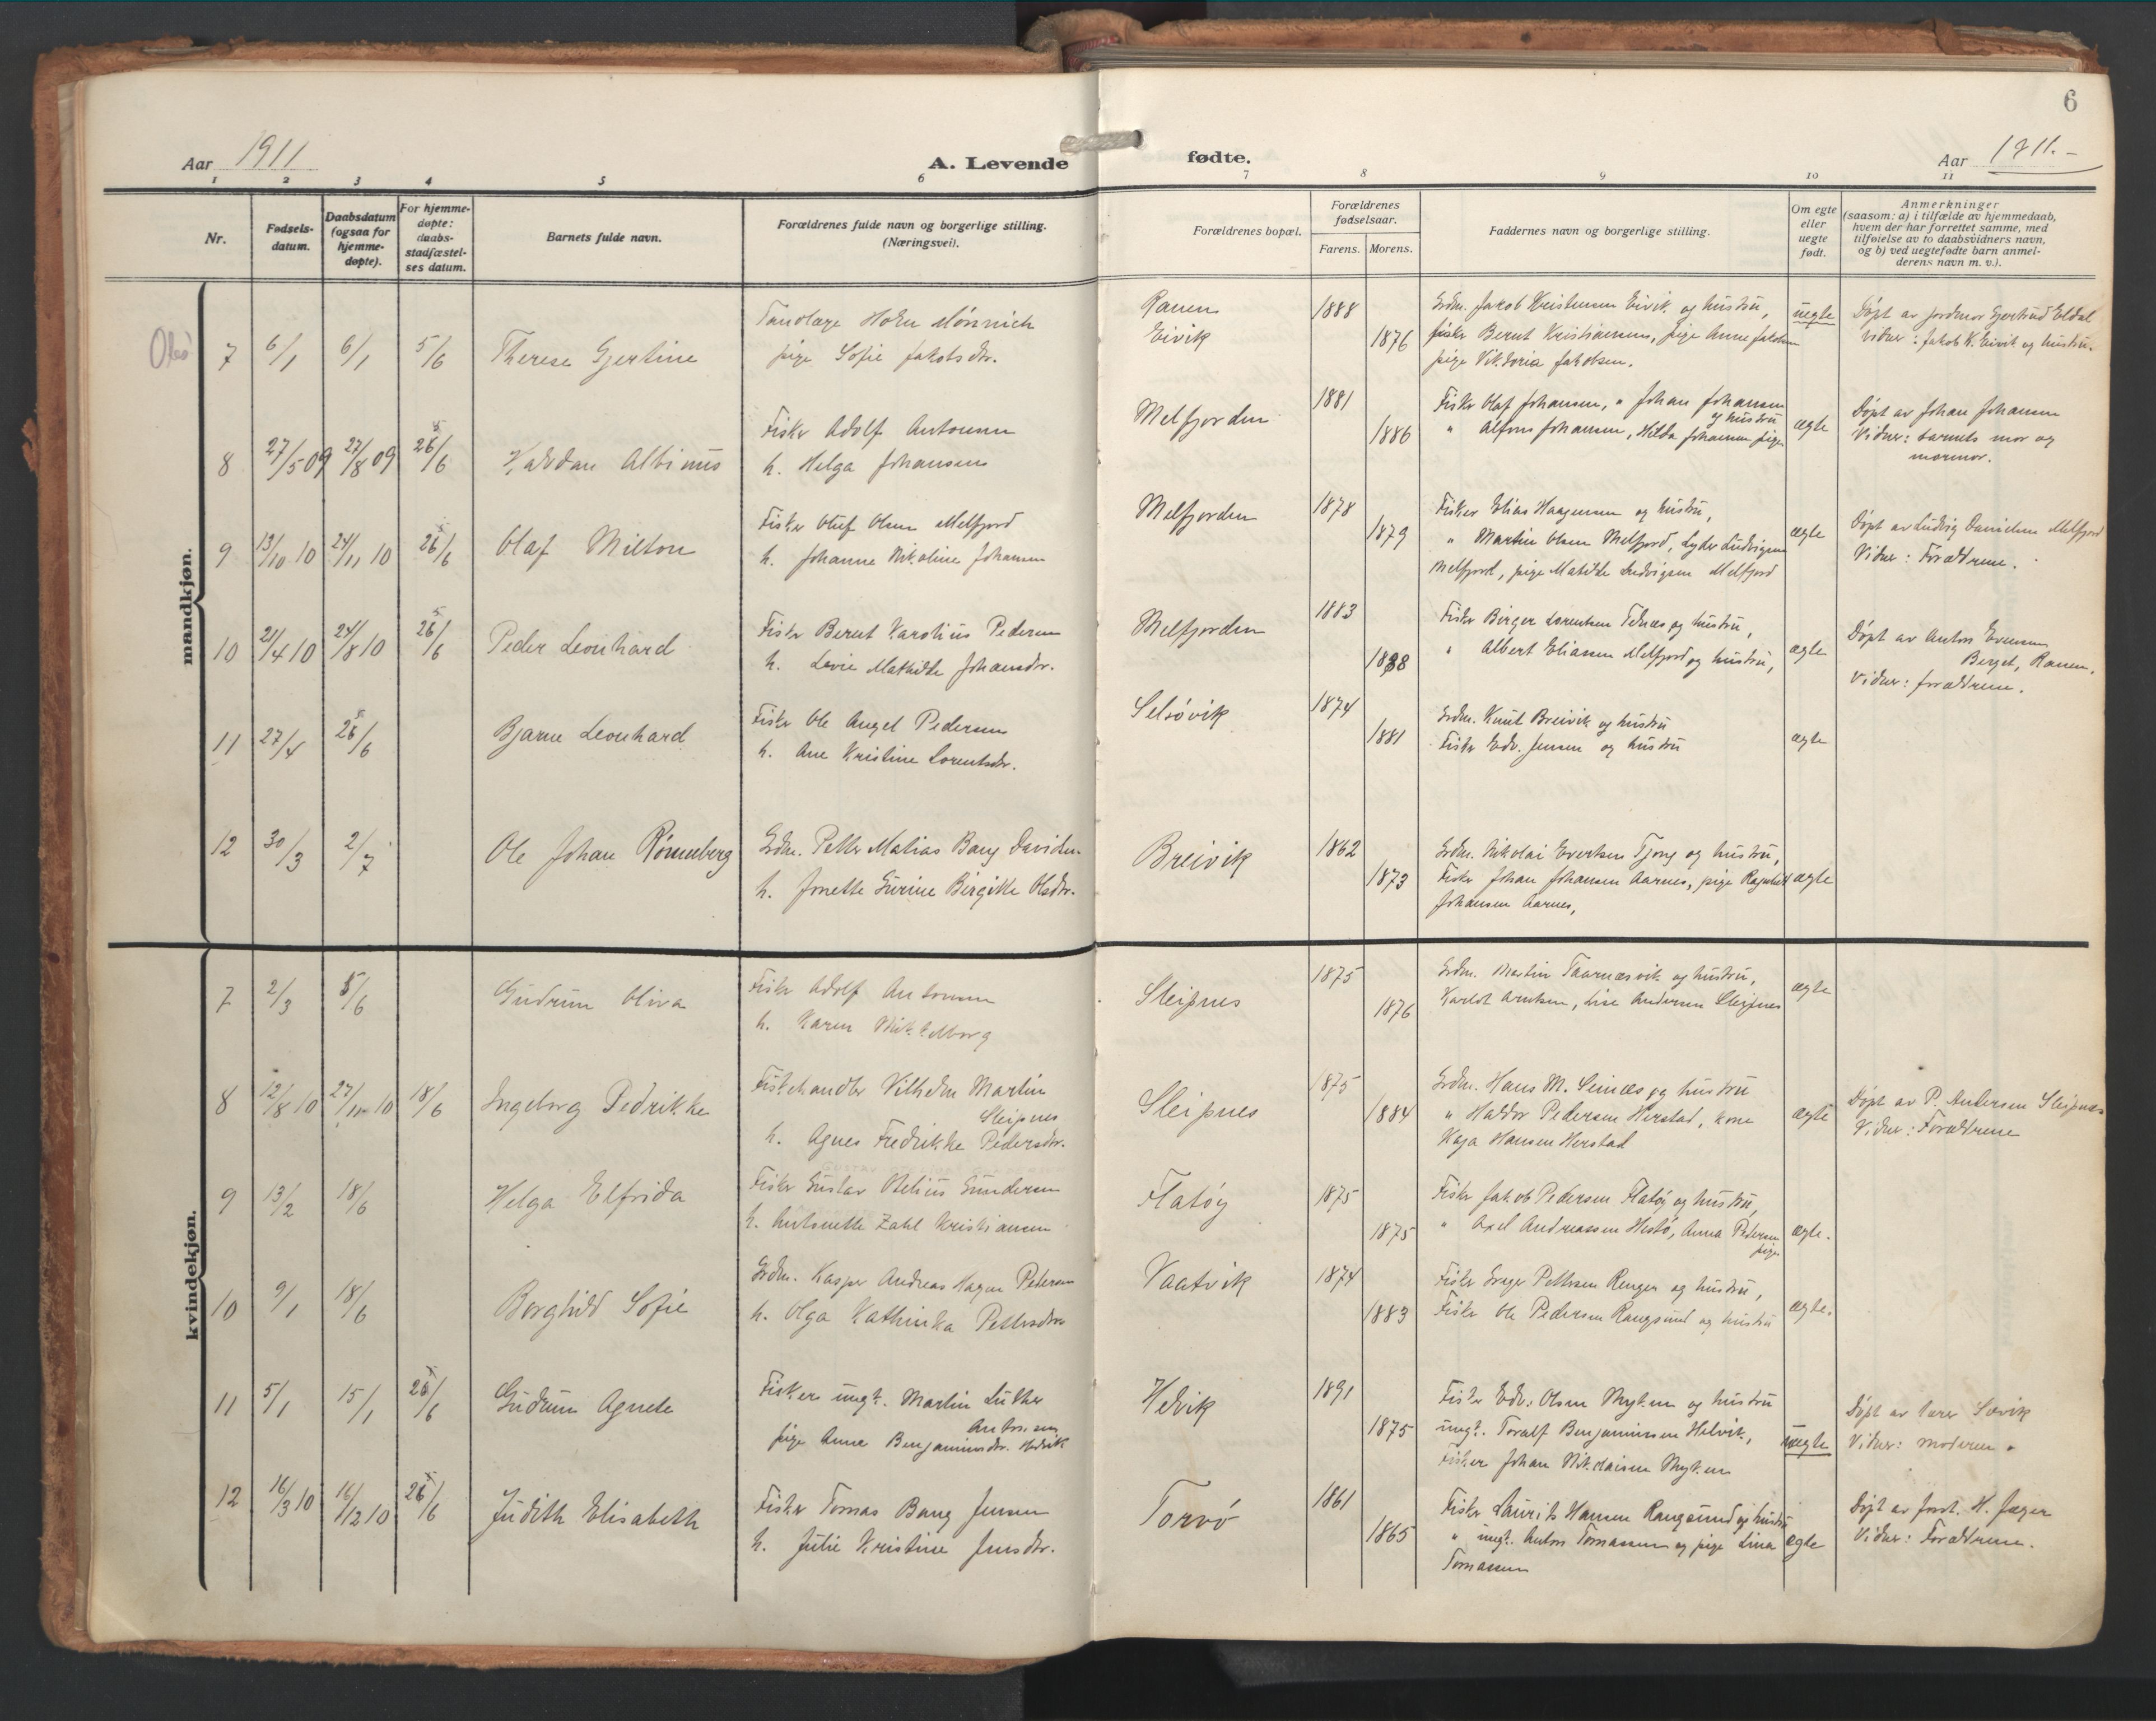 6
Aar 1911
A. Levende
fødte.
Aar 1911.-
1 2 3 4 5 6 7 8 9 10 11
Nr.
Fødsels-
datum.
Daabsdatum
(ogsaa for
hjemme-
døpte).
For hjemme-
døpte:
daabs-
stadfæstel-
ses datum.
Barnets fulde navn.
Forældrenes fulde navn og borgerlige stilling.
(Næringsvei).
Forældrenes bopæl.
Forældrenes
fødselsaar.
Farens. Morens.
Faddernes navn og borgerlige stilling.
Om egte
eller
uegte
født.
Anmerkninger
(saasom: a) i tilfælde av hjemmedaab,
hvem der har forrettet samme, med
tilføielse av to daabsvidners navn,
og b) ved uegtefødte barn anmel-
derens navn m. v.).
mandkjøn.
Obs
7 6/1 6/1 5/6 Therese Gjertine
Tandlæge Holm Mönnich
pige Sofie Jakobsdr.
Ranen
Eivik
1888
1876
Grdm. Jakob Kristensen Eivik og hustru,
fisker Bernt Kristiansen, pige Anne Jakobsen
pige Viktoria Jakobsen.
uegte
Døpt av jordmor Gjertrud Eldal
Vidner: Jakob K. Eivik og hustru.
8 27/5 09 27/8 09 26/6 Haldan Albinus
Fisker Adolf Antonsen
h. Helga Johansen
Melfjorden
1881
1886
Fisker Olaf Johansen, " Johan Johansen
og hustru
" Alfons Johansen, Hilda Johansen pige
ægte
Døpt av Johan Johansen
Vidner: barnets mor og
mormor.
9 13/10 10 24/11 10 26/6 Olaf Milton
Fisker Oluf Olsen Melfjord
h. Johanne Nikoline Johansen
Melfjorden
1878
1879
Fisker Elias Haagensen og hustru,
" Martin Olsen Melfjord, Lyder Ludvigsen
Melfjord, pige Matilde Ludvigsen Melfjord
ægte
Døpt av Ludvig Danielsen Melfjord
Vidner: Forældrene.
10 21/4 10 24/8 10 26/6 Peder Leonhard
Fisker Bernt Karolius Pedersen
h. Lovie Mathilde Johansdr.
Melfjorden
1883
1888
Fisker Birger Lorentsen Telnes og hustru,
" Albert Eliassen Melfjord og hustru,
ægte
Døpt av Anton Evensen
Berget, Ranen.
Vidner: forældrene.
11 27/4 26/6 Bjarne Leonhard
Fisker Ole Angel Pedersen
h. Ane Kristine Lorentsdr.
Selsövik
1874
1881
Grdm. Knut Breivik og hustru
Fisker Edv. Jensen og hustru
ægte
12 30/3 2/7 Ole Johan Rönneberg
Grdm. Petter Matias Bang Davidsen
h. Jonette Gurine Birgitte Olsdr.
Breivik
1862
1873
Grdm. Nikolai Evertsen Tjong og hustru,
Fisker Johan Johansen Aarnes, pige Ragnhild
Johansen Aarnes,
ægte
kvindekjøn.
7 2/3 5/6 Gudrun Oliva
Fisker Adolf Antonsen
h. Karen Mikkelborg
Sleipnes
1875
1876
Grdm. Martin Taarnæsvik og hustru,
Harldt Arntsen, Lise Andersen Sleipnes
ægte
8 12/8 10 27/11 10 18/6 Ingeborg Pedrikke
Fiskehandler Vilhelm Martin
Sleipnes
h. Agnes Fredrikke Pedersdr.
Sleipnes
1875
1884
Grdm. Hans M. Seines og hustru
" Haldor Pedersen Herstad, kone
Kaja Hansen Herstad
ægte
Døpt av P. Andersen Sleipnes
Vidner: Forældrene
9 13/2 18/6 Helga Elfrida
Fisker Gustav Obelius Gundersen
h. Antonette Zahl Kristiansen
Flatöy
1875
1875
Fisker Jakob Pedersen Flatöy og hustru,
" Axel Andreassen Hestö, Anna Pedersen
pige
ægte.
10 9/1 18/6 Borghild Sofie
Grdm. Kasper Andreas Hagen Petersen
h. Olga Kathinka Pettersdr.
Vaatvik
1874
1883
Fisker Gruger Pettersen Rengen og hustru,
Fisker Ole Pedersen Rangsund og hustru
ægte.
11 5/1 15/1 26/6 Gudrun Agnete
Fisker ungk. Martin Luther
Antonsen
pige Anna Benjaminsdr. Hedvik
Helvik
1891
1875
Fisker Edv. Olsen Myken og hustru
ungk. Toralf Benjaminsen Helvik,
Fisker Johan Nikolaisen Myken
uægte
Døpt av lærer Sævik
Vidner: moderen.
12 16/3 10 16/12 10 26/6 Judith Elisabeth
Fisker Tomas Bang Jensen
h. Julie Kristine Jensdr.
Torvö
1861
1865
Fisker Laurits Hansen Rangsund og hustru
" ungk. Anton Tomassen og pige Lina
Tomassen
ægte
Døpt av forst. H. Jæger
Vidner: Forældrene.